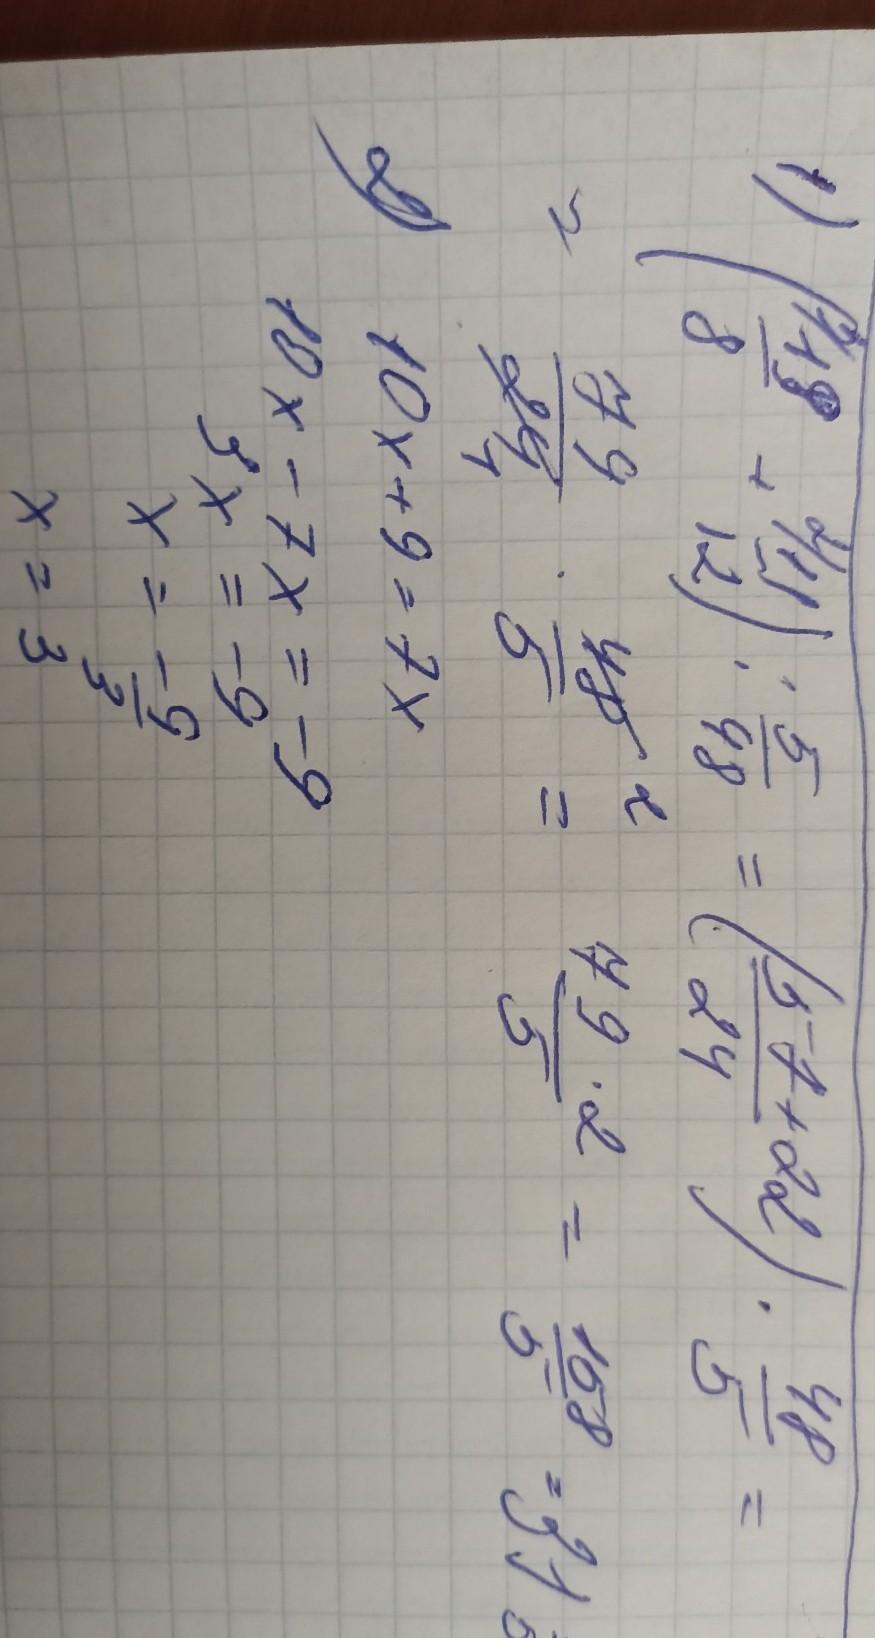 1) (19/8 + 11/12) : 5/48 = (57+22/24) · 48/5 =
= 79/24 · 48/5 = 79·2/5 = 158/5 = 31
2) 10x + 9 = 7x
10x - 7x = -9
3x = -9
x = -9/3
x = 3